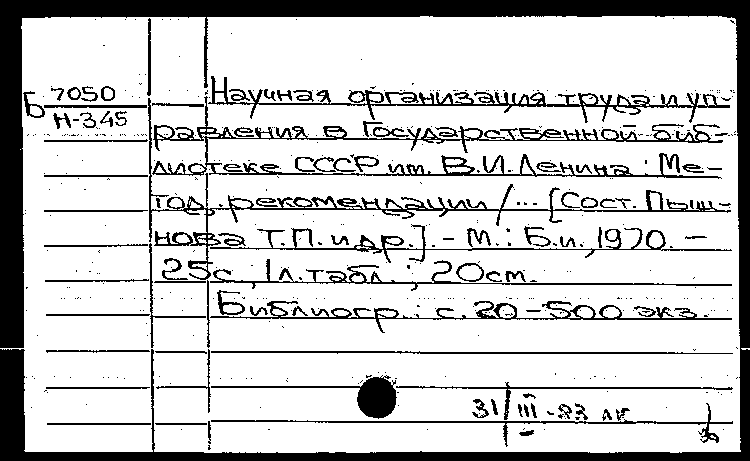 Б 7050
Н-345
Научная организация труда и уп-
равления в Государственной биб-
лиотеке СССР им. В.И. Ленина : Ме-
тод. рекомендации / ... [Сост. Пыш-
нова Т.П. и др.]. - М. : Б.и., 1970. -
25с., 1л. табл. ; 20см.
Библиогр.: с. 20 - 500 экз.
31/III-83 лк